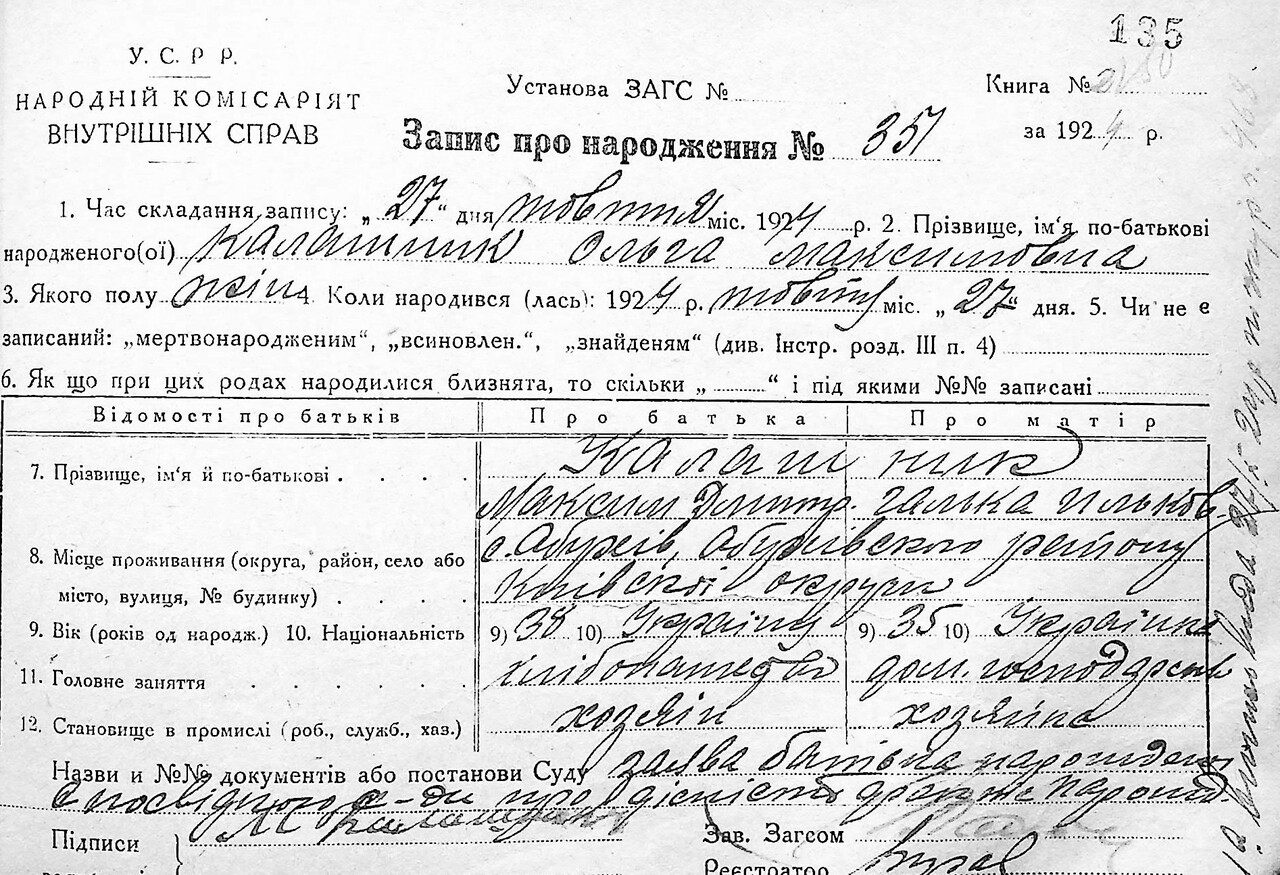 135
У. С. Р Р.
НАРОДНІЙ КОМІСАРІЯТ
ВНУТРІШНІХ СПРАВ
Установа ЗАГС №
Книга №
за 1924 р.
Запис про народження № 351
1. Час складання запису: „27“ дня жовтня міс. 1924 р. 2. Прізвище, ім'я по-батькові
народженого(ої) Калашник Ольга Максимовна
3. Якого полу жін. 4. Коли народився (лась): 1924 р. жовтня міс. „27“ дня. 5. Чи не є
записаний: „мертвонародженим“, „всиновлен.“, „знайденям“ (див. Інстр. розд. III п. 4)
6. Як що при цих родах народилися близнята, то скільки „ “ і під якими №№ записані
Відомості про батьків Про батька Про матір
7. Прізвище, ім'я й по-батькові . . . . Калашник
Максим Дмитр. Галька Ильков.
8. Місце проживання (округа, район, село або с. Обухів, Обухівского району
місто, вулиця, № будинку) . . . . Київскої округи
9. Вік (років од народж.) 10. Національність 9) 38 10) Українец 9) 35 10) Українка
11. Головне заняття . . . . . хлібопашество дом. господарств
12. Становище в промислі (роб., служб., хаз.) хозяін хозяйка
Назви и №№ документів або постанови Суду заява батька
про дісність
Підписи М Калашник Зав. Загсом
Реєстратор